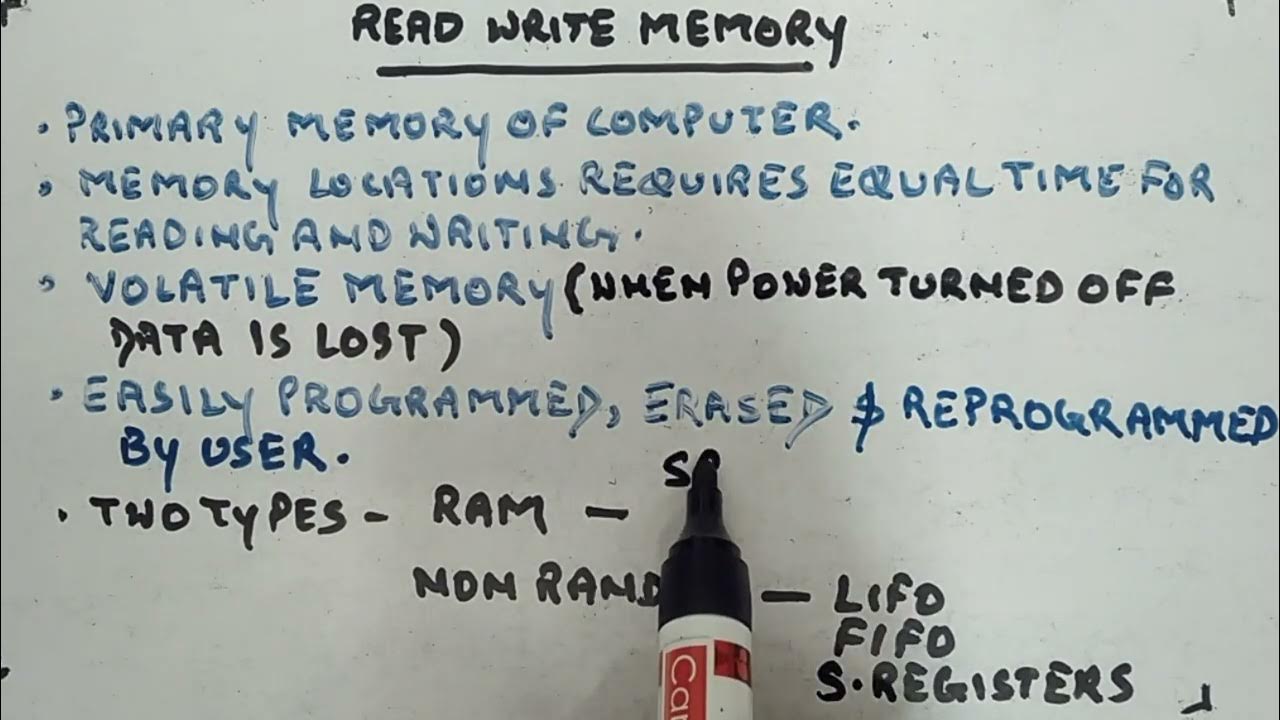 READ WRITE MEMORY
• PRIMARY MEMORY OF COMPUTER.
• MEMORY LOCATIONS REQUIRES EQUAL TIME FOR
READING AND WRITING.
• VOLATILE MEMORY (WHEN POWER TURNED OFF
DATA IS LOST)
• EASILY PROGRAMMED, ERASED & REPROGRAMMED
BY USER.
• TWO TYPES - RAM -
NON - LIFO
FIFO
S.REGISTERS